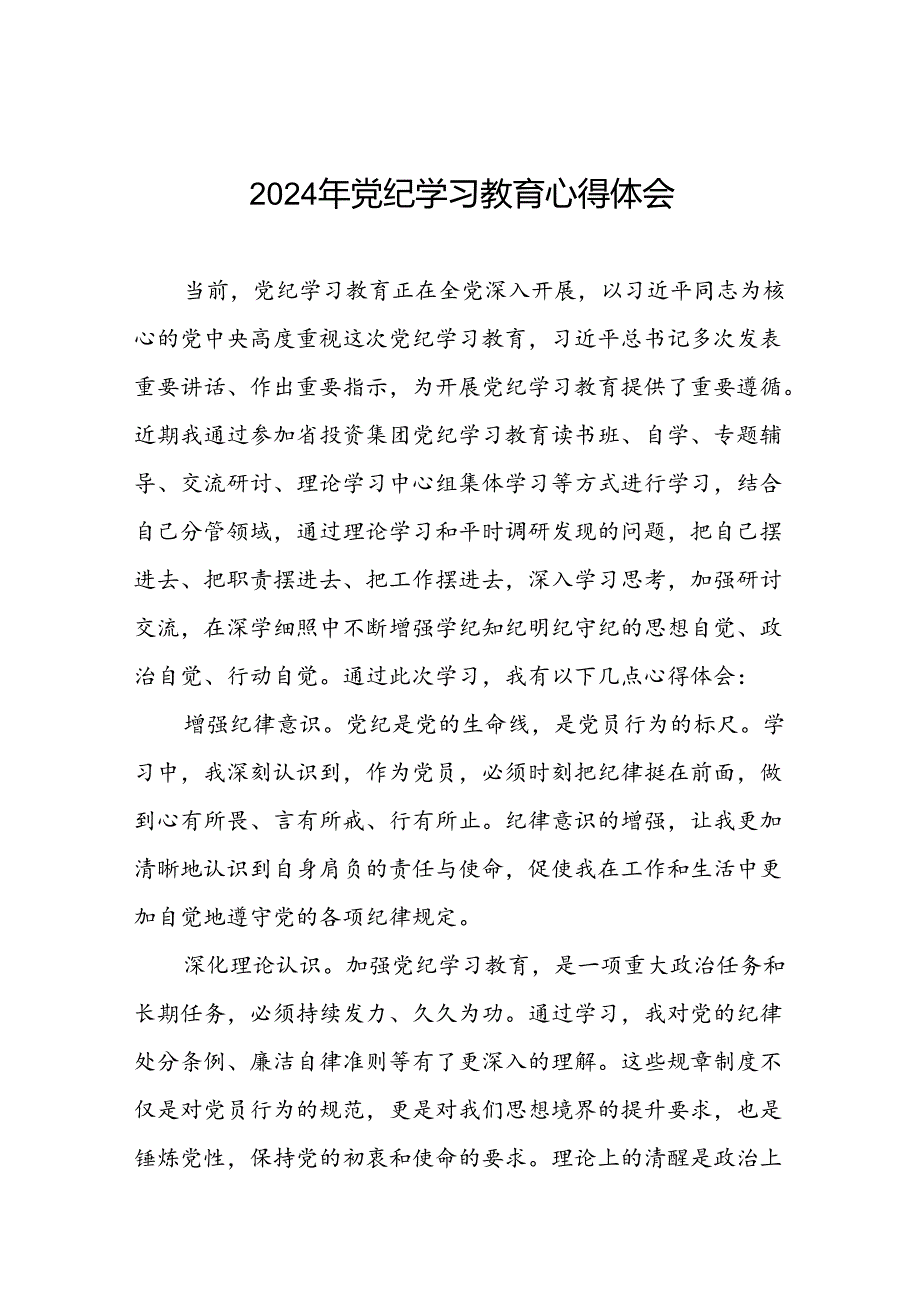 2024年党纪学习教育心得体会
当前，党纪学习教育正在全党深入开展，以习近平同志为核
心的党中央高度重视这次党纪学习教育，习近平总书记多次发表
重要讲话、作出重要指示，为开展党纪学习教育提供了重要遵循。
近期我通过参加省投资集团党纪学习教育读书班、自学、专题辅
导、交流研讨、理论学习中心组集体学习等方式进行学习，结合
自己分管领域，通过理论学习和平时调研发现的问题，把自己摆
进去、把职责摆进去、把工作摆进去，深入学习思考，加强研讨
交流，在深学细照中不断增强学纪知纪明纪守纪的思想自觉、政
治自觉、行动自觉。通过此次学习，我有以下几点心得体会：
增强纪律意识。党纪是党的生命线，是党员行为的标尺。学
习中，我深刻认识到，作为党员，必须时刻把纪律挺在前面，做
到心有所畏、言有所戒、行有所止。纪律意识的增强，让我更加
清晰地认识到自身肩负的责任与使命，促使我在工作和生活中更
加自觉地遵守党的各项纪律规定。
深化理论认识。加强党纪学习教育，是一项重大政治任务和
长期任务，必须持续发力、久久为功。通过学习，我对党的纪律
处分条例、廉洁自律准则等有了更深入的理解。这些规章制度不
仅是对党员行为的规范，更是对我们思想境界的提升要求，也是
锤炼党性，保持党的初衷和使命的要求。理论上的清醒是政治上